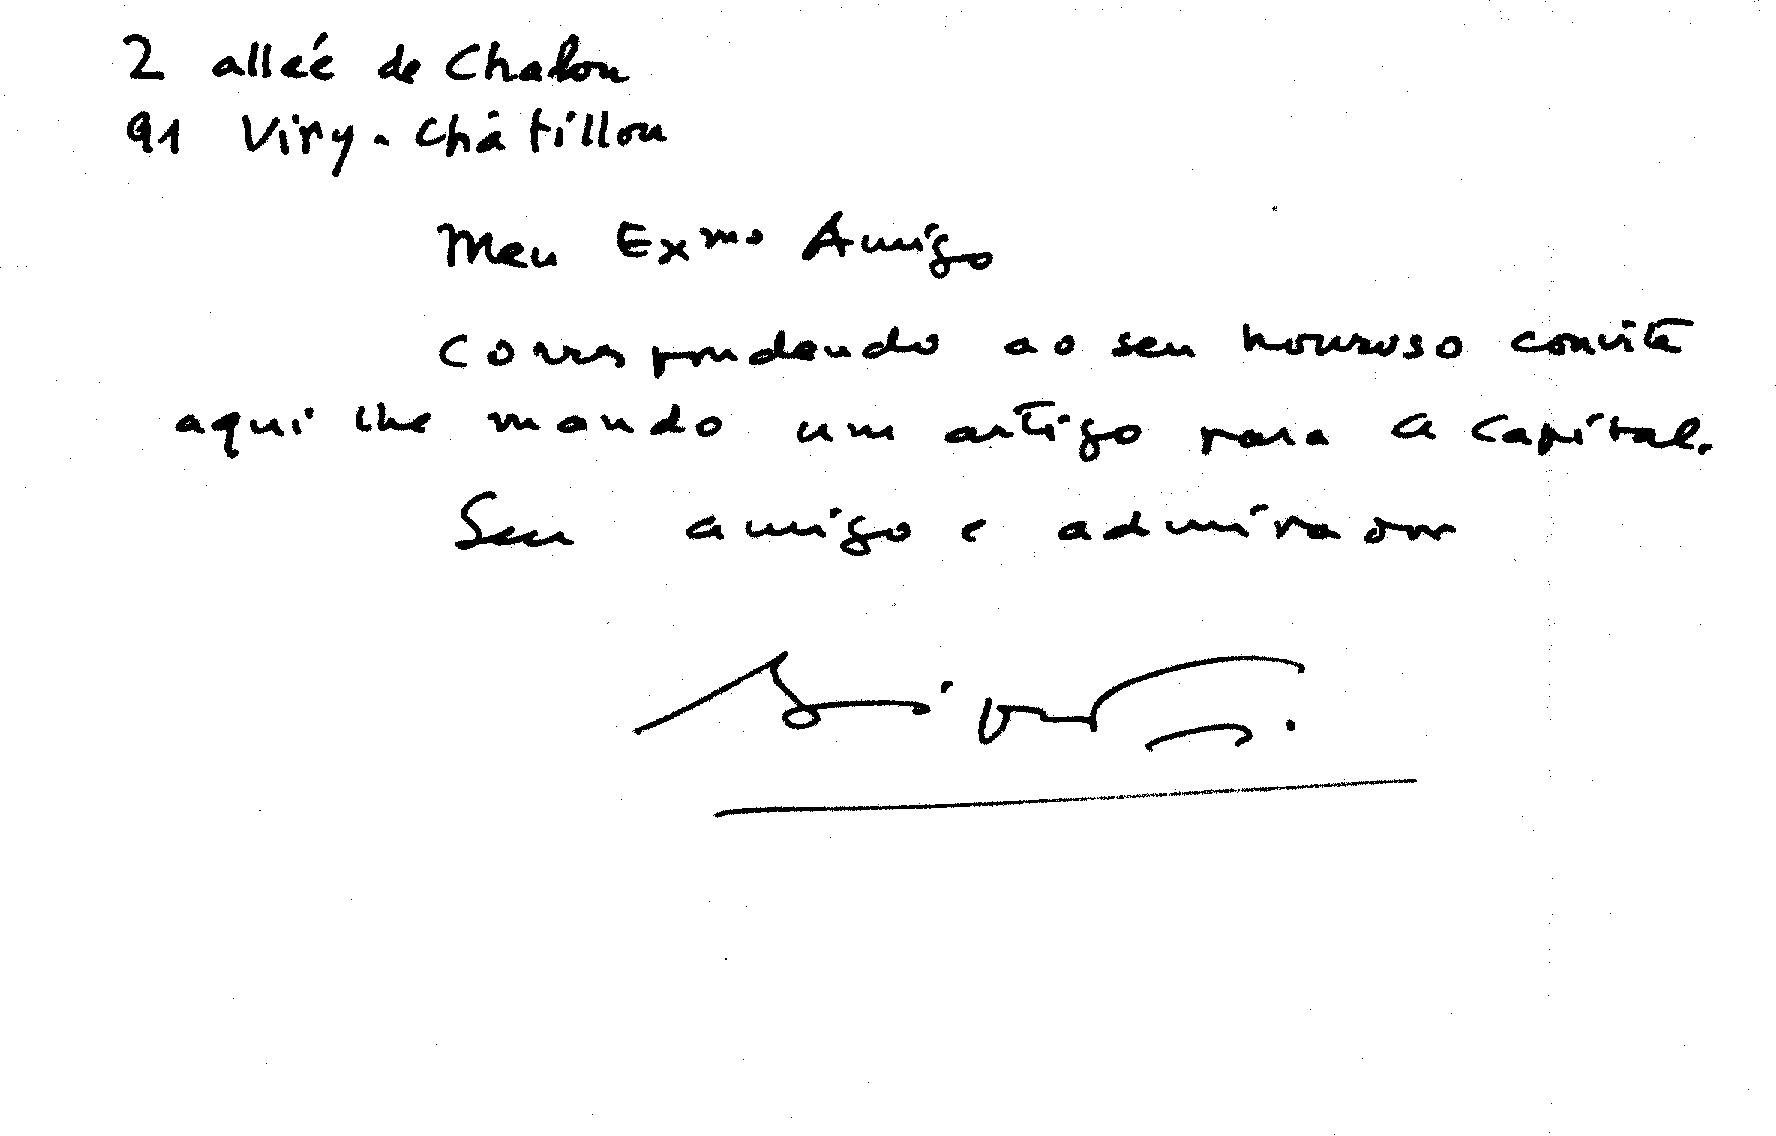 2 alleé de Chalon
91 Viry-Châtillon
Meu Exmo Amigo
Correspondendo ao seu honroso convite
aqui lhe mando um artigo para A Capital.
Seu amigo e admirador